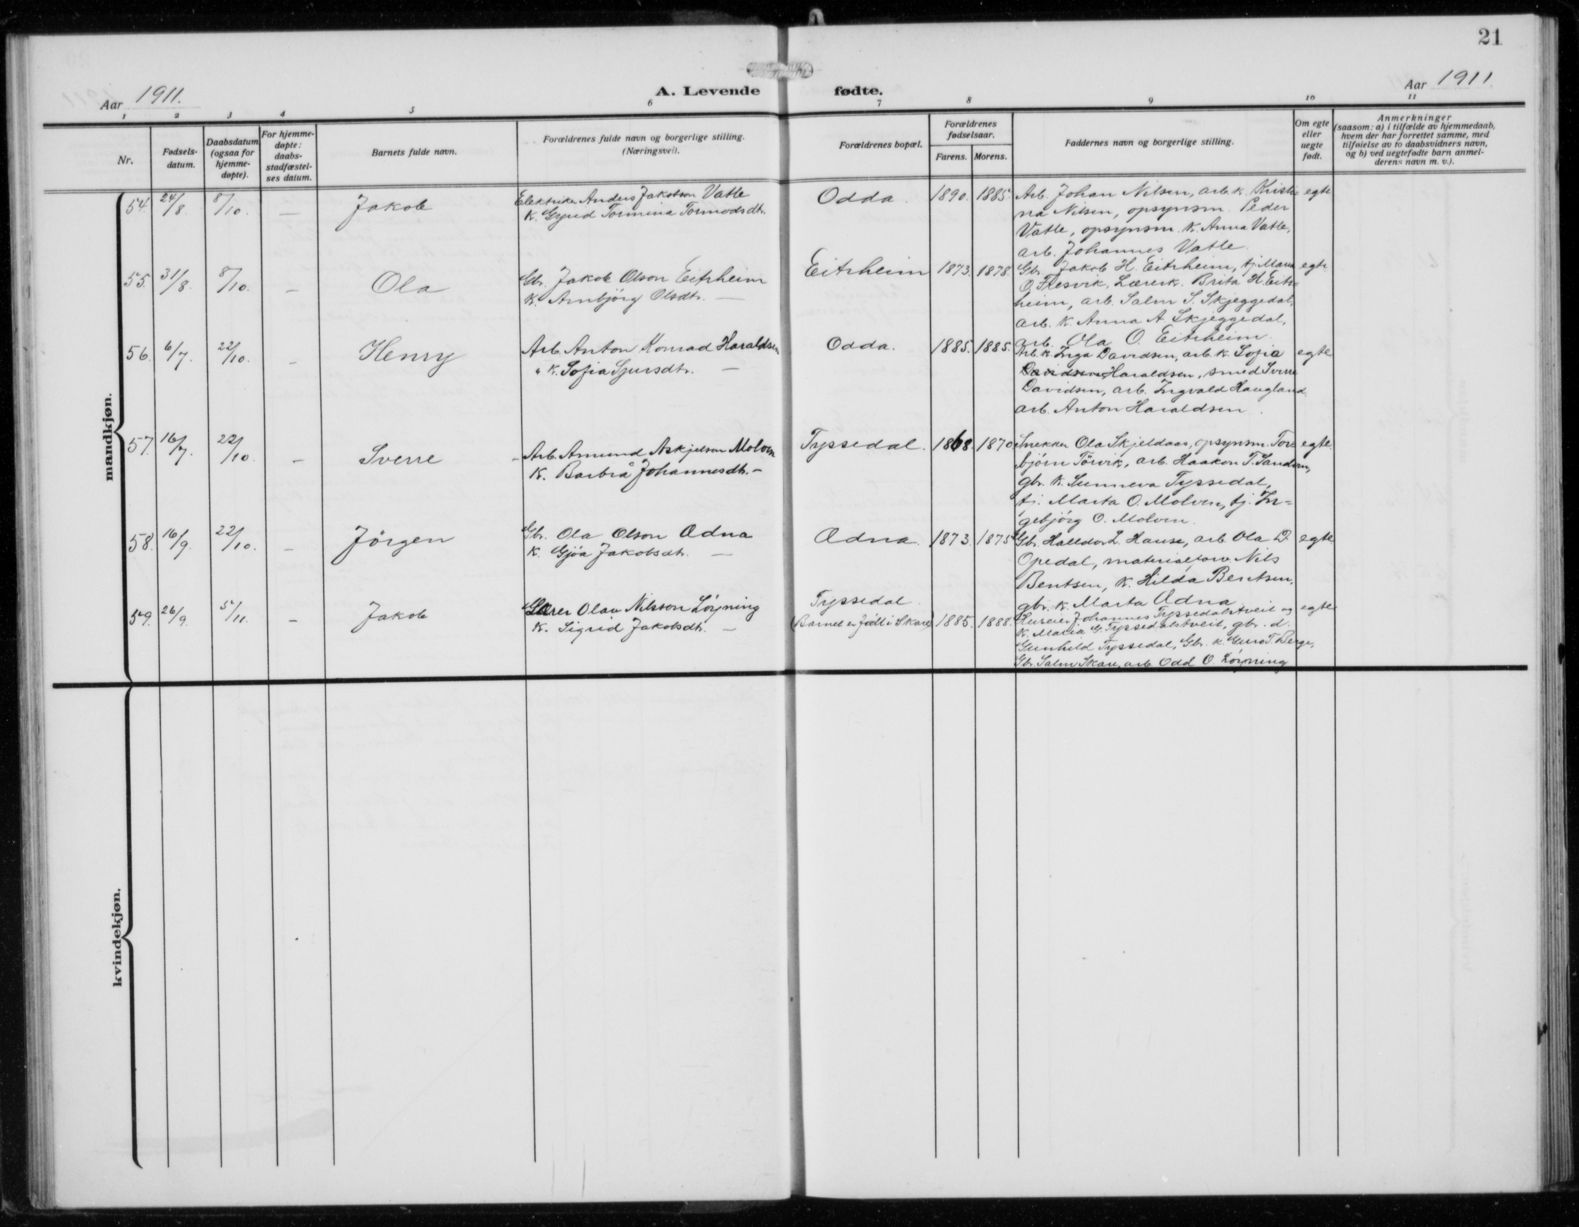 21
Aar 1911.
A. Levende fødte.
Aar 1911
1 2 3 4 5 6 7 8 9 10 11
Nr.
Fødsels-
datum.
Daabsdatum
(ogsaa for
hjemme-
døpte).
For hjemme-
døpte:
daabs-
stadfæstel-
ses datum.
Barnets fulde navn.
Forældrenes fulde navn og borgerlige stilling.
(Næringsvei).
Forældrenes bopæl.
Forældrenes
fødselsaar.
Farens. Morens.
Faddernes navn og borgerlige stilling.
Om egte
eller
uegte
født.
Anmerkninger
(saasom: a) i tilfælde av hjemmedaab,
hvem der har forrettet samme, med
tilføielse av to daabsvidners navn,
og b) ved uegtefødte barn anmel-
derens navn m. v.).
mandkjøn.
54. 24/8. 8/10. — Jakob
Elektriker Anders Jakobson Vatle
K. Gyrid Tormina Tormodsdt.
Odda. 1890. 1885.
Arb. Johan Nilsen, arb. k. Kristi-
na Nilsen, opsynsm. Peder
Vatle, opsynsm. k. Anna Vatle,
arb. Johannes Vatle.
egte
55. 31/8. 8/10. — Ola
Gbr. Jakob Olson Eitrheim
K. Arnbjörg Olsdtr. —
Eitrheim 1873. 1878
Gbr. Jakob H. Eitrheim, tj. Maria
O. Fresvik, Lærerk. Brita H. Eitr-
heim, arb. Salm. S. Skjeggedal,
arb. k. Anna A Skjeggedal,
arb. Ola O. Eitrheim.
egte
56. 6/7. 22/10. — Henry
Arb. Anton Konrad Haraldsen
" K. Sofia Sjursdtr. —
Odda. 1885. 1885.
Arb. k. Inga Davidsen, arb. k. Sofia
Davidsen Haraldsen, smed Sverre
Davidsen, arb. Ingvald Haugland,
arb. Anton Haraldsen.
egte
57. 16/7. 22/10. — Sverre
Arb. Amund Askjelson Molven
K. Barbra Johannesdt. —
Tyssedal. 1868. 1870
Snekker Ola Skjeldaas, opsynsm. Tor-
björn Törvik, arb. Haakon T. Sandven,
gbr. k. Sunneva Tyssedal,
tj. Marta O. Molven, tj. In-
gebjörg O. Molven.
egte
58. 16/9. 22/10. — Jörgen
Gbr. Ola Olson Ædna
K. Gjöa Jakobsdt. —
Ædna 1873 1875
Gbr. Halldor L Hause, arb. Ola D.
Opedal, materialforv. Nils
Bentsen, K. Hilda Bentsen,
gbr. k. Marta Ædna
egte
59. 26/9. 5/11. — Jakob
Lærer Olav Nilsson Löyning
K. Sigrid Jakobsdt. —
Tyssedal
(Barnet er född i Skare) 1885. 1888.
Huseier Johannes Tyssedalstveit og
K. Maria G. Tyssedalstveit, gbr. d.
Gunhild Tyssedal, Gbr. k. Guro T. Berge,
Gbr. Salm. Skare, arb. Odd O. Löyning
egte
kvindekjøn.